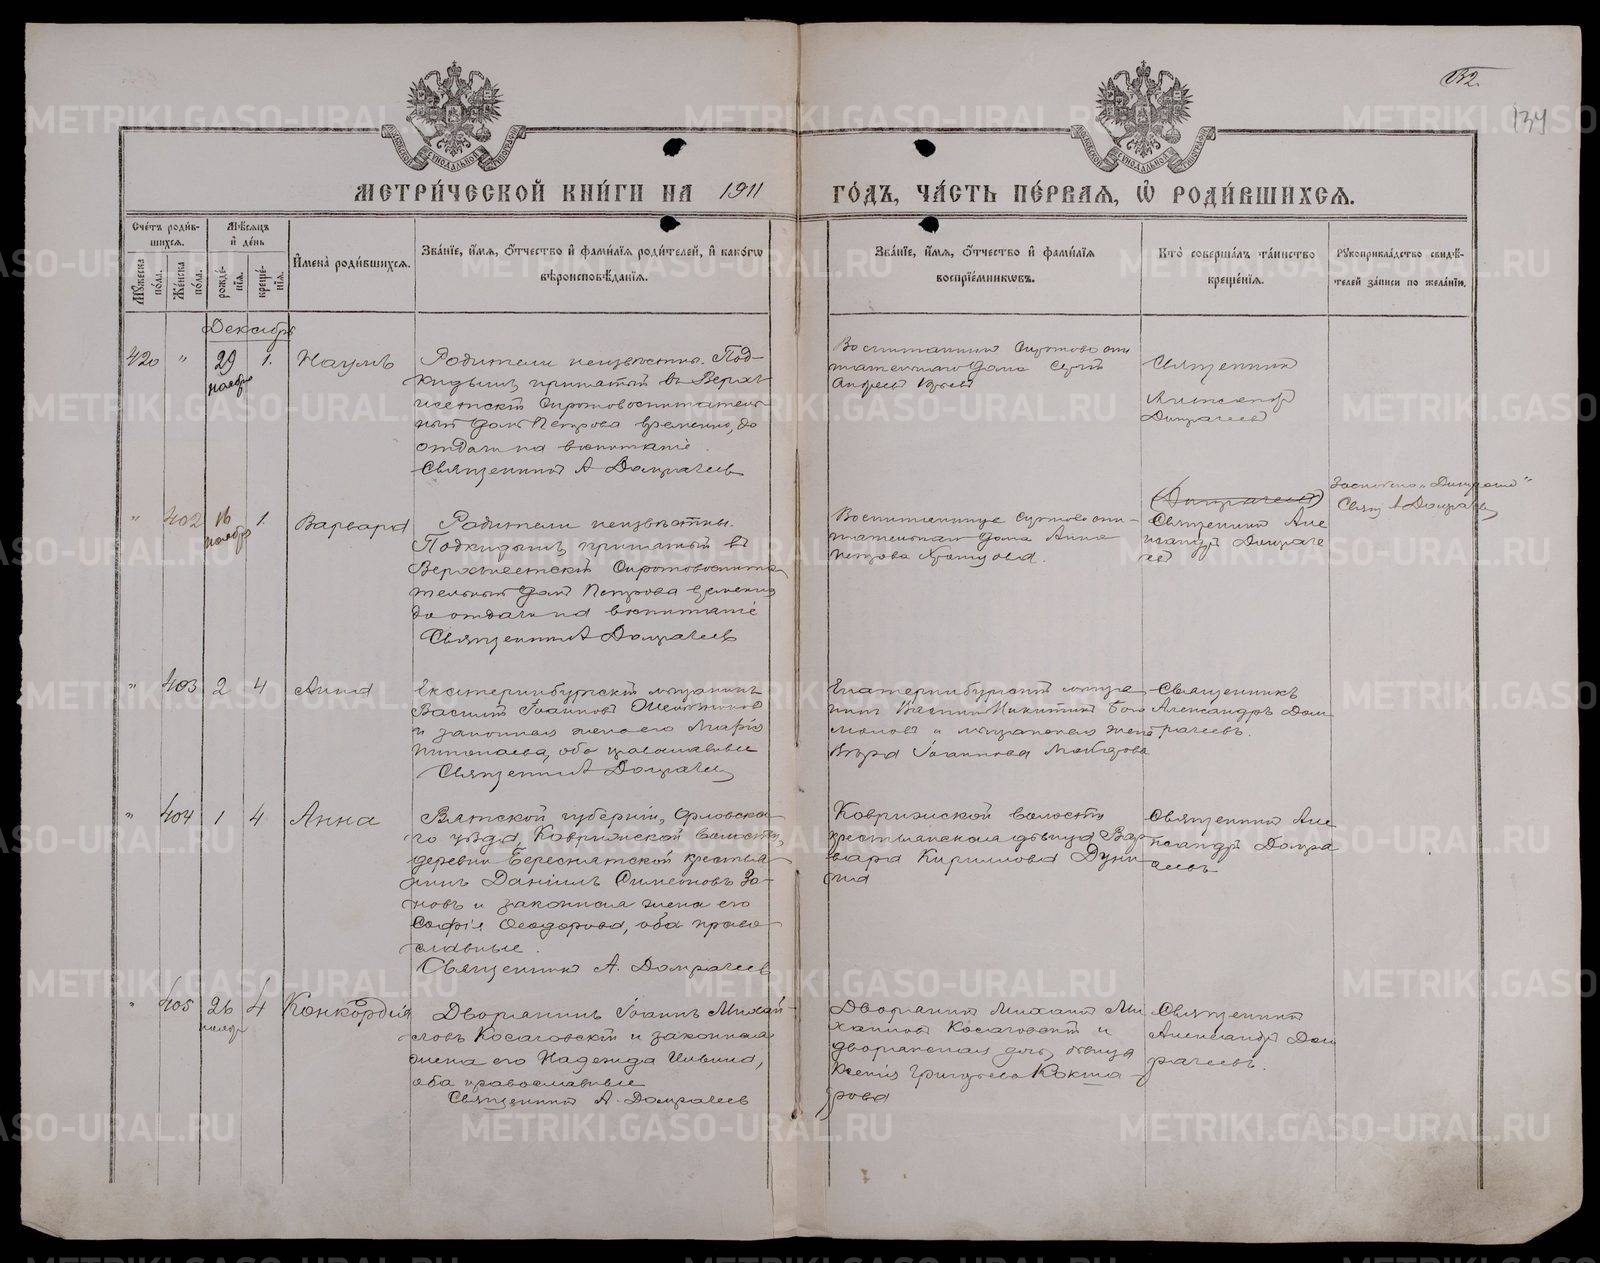 132.
134
МЕТРИ́ЧЕСКОЙ КНИ́ГИ НА 1911 ГО́ДЪ, ЧА́СТЬ ПЕ́РВАЯ, Ѡ҆ РОДИ́ВШИХСЯ.
Сче́тъ роди́в-
шихся.
Мꙋ́жеска по́ла.
Же́нска по́ла.
Мѣ́сяцъ
и҆ де́нь
рожде́-
нїя.
креще́-
нїя.
И҆мена̀ роди́вшихся.
Зва́нїе, и҆́мя, о҆́тчество и҆ фами́лїя роди́телей, и҆ како́гѡ
вѣроисповѣ́данїя.
Зва́нїе, и҆́мя, о҆́тчество и҆ фами́лїя
воспрїе́мникѡвъ.
Кто̀ соверша́лъ та́инство
креще́нїя.
Рꙋкоприкла́дство свидѣ́-
телей за́писи по жела́нїю.
Декабрь
420 " 29 1. Наумъ
ноября
Родители неизвѣстны. Под-
кидышъ принятый въ Верхъ-
исетскій Сиротовоспитатель-
ный домъ Петрова временно, до
отдачи на воспитаніе.
Священникъ А Домрачеевъ
Воспитанникъ Сиротовоспи
тательнаго дома Сергій
Андреевъ
Священникъ
Александръ
Домрачеевъ
" 402 16 1. Варвара
ноября
Родители неизвѣстны.
Подкидышъ принятый въ
Верхъисетскій Сиротовоспита
тельный домъ Петрова временно
до отдачи на воспитаніе
Священникъ А Домрачеевъ
Воспитанница Сиротовоспи-
тательнаго дома Анна
Петрова
Священникъ Але
ксандръ Домраче
евъ
Свящ. А Домрачеевъ
" 403 2 4 Анна
Екатеринбургскій мѣщанинъ
Василій Іоанновъ
и законная жена его Марія
Николаева, оба православные
Священникъ А Домрачеевъ
Екатеринбургскій мѣща
нинъ Василій Никитинъ
и мѣщанская жена
Вѣра Іоаннова
Священникъ
Александръ Дом
рачеевъ.
" 404 1 4 Анна
Вятской губерніи, Орловска-
го уѣзда, Коврижской волости,
деревни Береснятской крестья
нинъ Даніилъ Симеоновъ Зо-
новъ и законная жена его
Софія Ѳеодорова, оба право
славные.
Священникъ А. Домрачеевъ
Коврижской волости
крестьянская дѣвица Вар
вара Кириллова
Священникъ Але
ксандръ Домра
чеевъ
" 405 26 4 Конкордія
ноября
Дворянинъ Іоаннъ Михай-
ловъ Косаговскій и законная
жена его Надежда Ильина,
оба православные
Священникъ А. Домрачеевъ
Дворянинъ Михаилъ Ми
хаиловъ Косаговскій и
дворянская дочь, дѣвица
Ксенія Григорьева Кокша-
рова
Священникъ
Александръ Дом
рачеевъ.
METRIKI.GASO-URAL.RU